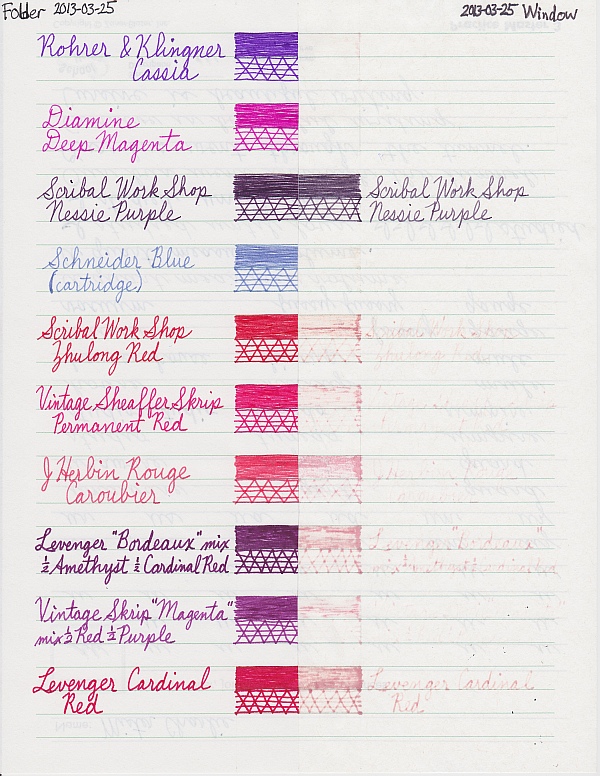 Folder 2013-03-25
2013-03-25 Window
Rohrer & Klingner
Cassia
Diamine
Deep Magenta
Scribal Work Shop
Nessie Purple
Scribal Work Shop
Nessie Purple
Schneider Blue
(cartridge)
Scribal Work Shop
Zhulong Red
Scribal Work Shop
Zhulong Red
Vintage Sheaffer Skrip
Permanent Red
J Herbin Rouge
Caroubier
Levenger "Bordeaux" mix
½ Amethyst ½ Cardinal Red
Levenger "Bordeaux"
mix ½ Amethyst
Vintage Skrip "Magenta"
mix ½ Red ½ Purple
Levenger Cardinal
Red
Levenger Cardinal
Red